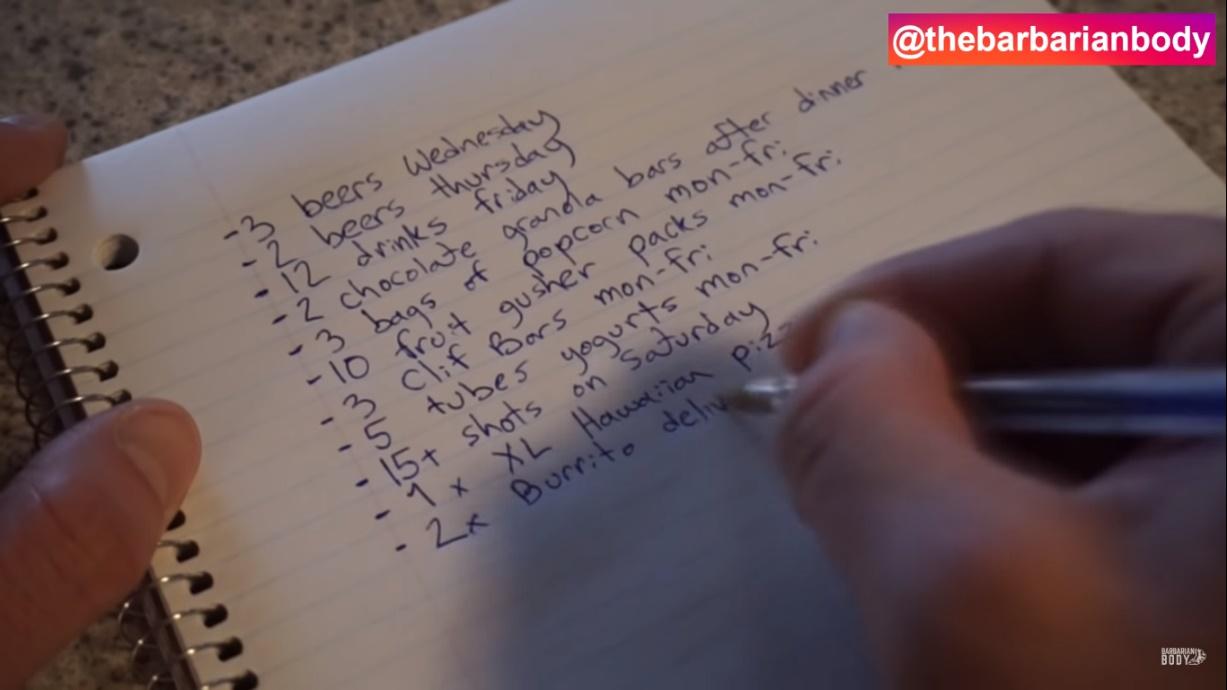 @thebarbarianbody
-3 beers Wednesday
- 2 beers thursday
- 12 drinks friday
- 2 chocolate granola bars after dinner
- 3 bags of popcorn mon-fri
-10 fruit gusher packs mon-fri
- 3 Clif Bars mon-fri
- 5 tubes yogurts mon-fri
- 15+ shots on saturday
- 1x XL Hawaiian
- 2x Burrito
BARBARIAN
BODY